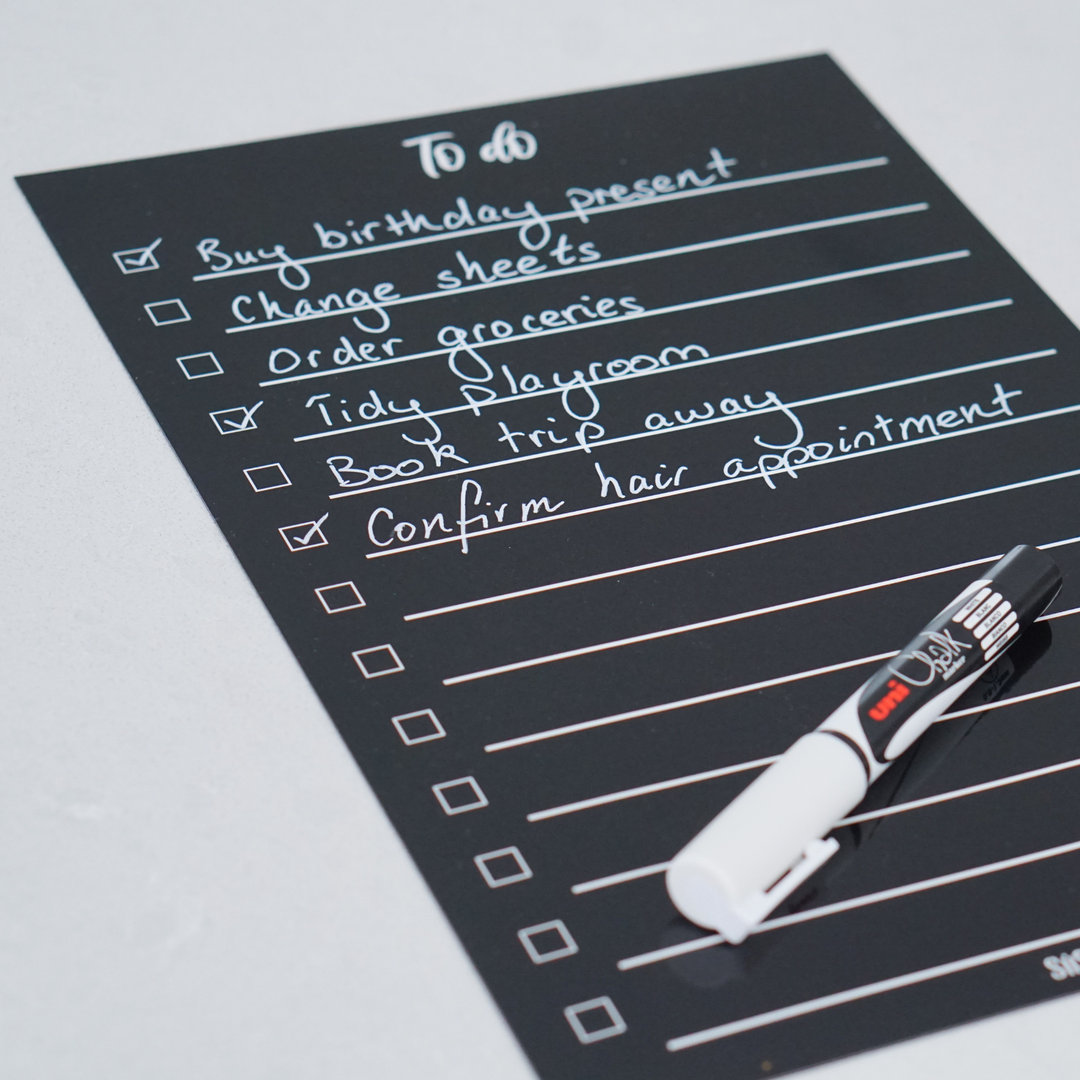 To do
Buy birthday present
Change sheets
Order groceries
Tidy Playroom
Book trip away
Confirm hair appointment
uni Chalk
marker
WHITE
BLANC
BLANCO